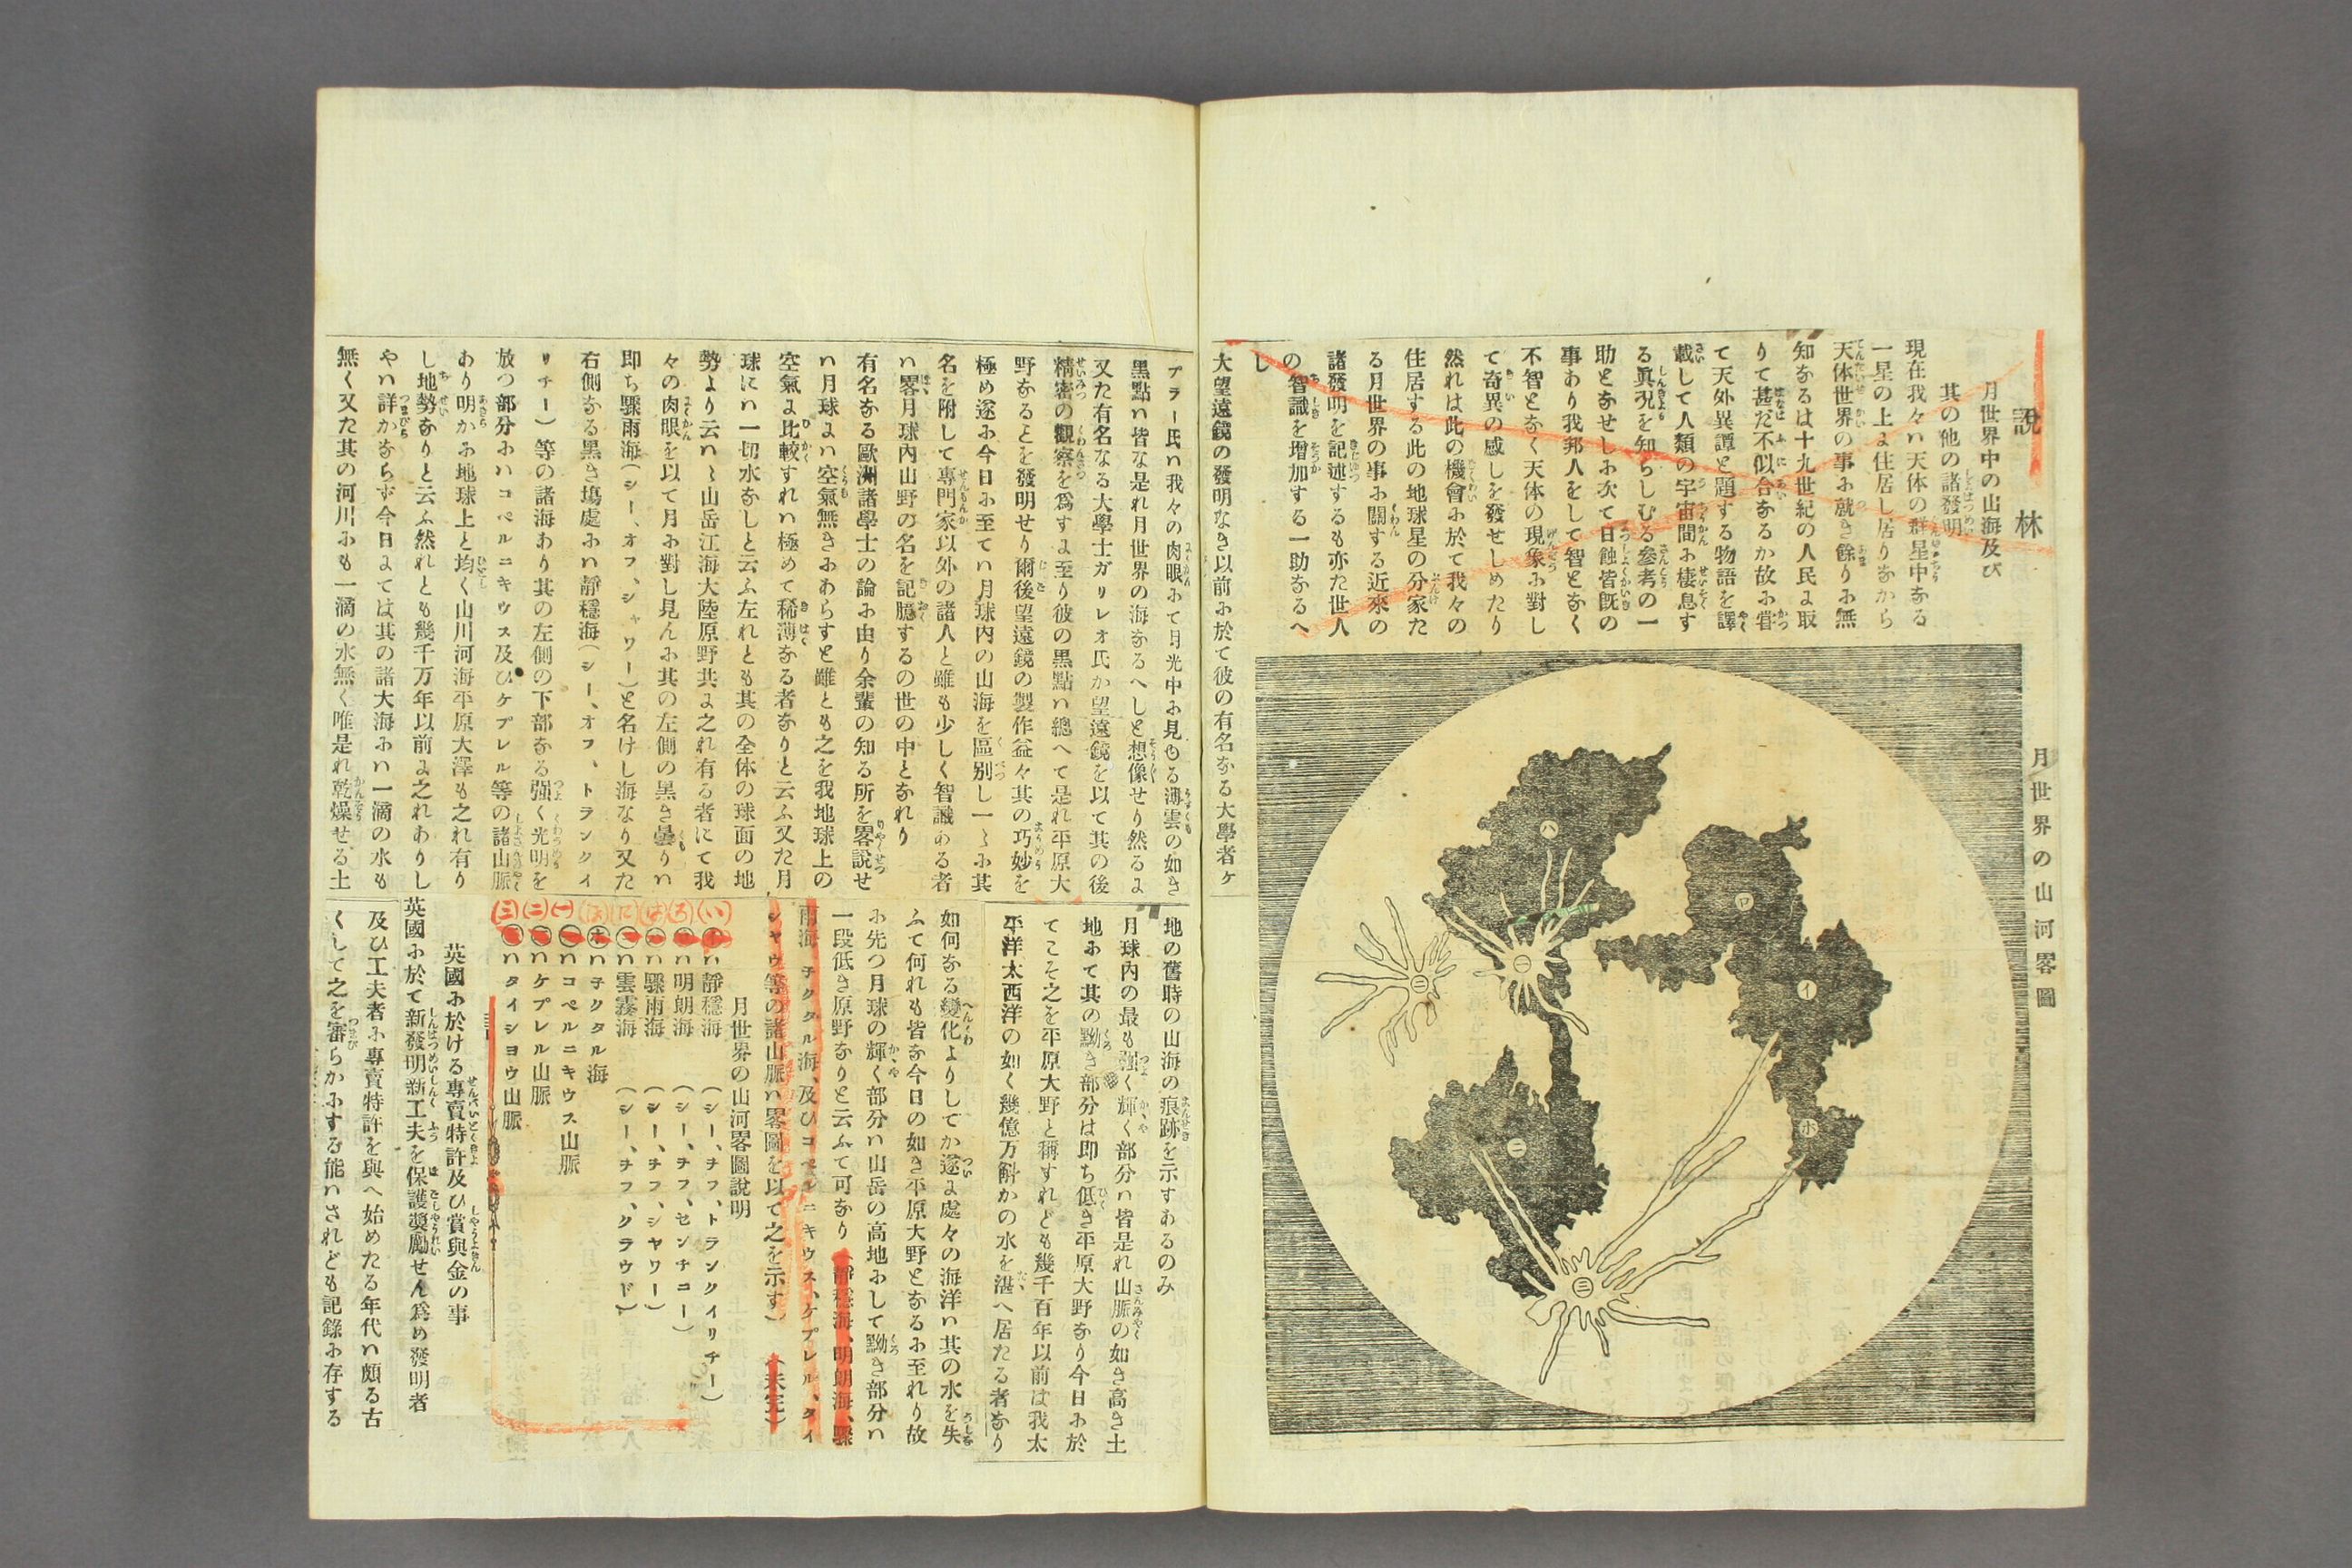 説林
月世界中の山海及び
其の他の諸發明
現在我々ハ天体の群星中なる
一星の上に住居し居りながら
天体世界の事に就き餘りに無
知なるは十九世紀の人民に取
りて甚だ不似合なるか故に甞
て天外異譚と題する物語を譯
載して人類の宇宙間に棲息す
る眞况を知らしむる參考の一
助となせしに次て日蝕皆旣の
事あり我邦人をして智となく
不智となく天体の現象に對し
て奇異の感しを發せしめたり
然れは此の機會に於て我々の
住居する此の地球星の分家た
る月世界の事に關する近來の
諸發明を記述するも亦た世人
の智識を増加する一助なるへ
し
月世界の山河畧圖
ハ
ロ
イ
一
二
ニ
ホ
三
大望遠鏡の發明なき以前に於て彼の有名なる大學者ケ
プラー氏ハ我々の肉眼にて月光中に見ゆる薄雲の如き
黑點ハ皆な是れ月世界の海なるへしと想像せり然るに
又た有名なる大學士ガリレオ氏か望遠鏡を以て其の後
精密の觀察を爲すに至り彼の黑點ハ總へて是れ平原大
野なることを發明せり爾後望遠鏡の製作益々其の巧妙を
極め遂に今日に至てハ月球内の山海を區别し一々に其
名を附して專門家以外の諸人と雖も少しく智識ある者
ハ畧ほ月球内山野の名を記臆するの世の中となれり
有名なる歐洲諸學士の論に由り余輩の知る所を畧説せ
ハ月球にハ空氣無きにあらすと雖とも之を我地球上の
空氣に比較すれハ極めて稀薄なる者なりと云ふ又た月
球にハ一切水なしと云ふ左れとも其の全体の球面の地
勢より云ハヽ山岳江海大陸原野共に之れ有る者にて我
々の肉眼を以て月に對し見んに其の左側の黑き曇りハ
即ち驟雨海(シー、オフ、シャワー)と名けし海なり又た
右側なる黑き塲處にハ靜穩海(シー、オフ、トランクイ
リチー)等の諸海あり其の左側の下部なる强く光明を
放つ部分にハコペルニキウス及ひケプレル等の諸山脈
あり明かに地球上と均く山川河海平原大澤も之れ有り
し地勢なりと云ふ然れとも幾千万年以前に之れありし
やハ詳かならず今日にては其の諸大海にハ一滴の水も
無く又た其の河川にも一滴の水無く唯是れ乾燥せる土
地の舊時の山海の痕跡を示すあるのみ
月球内の最も强く輝く部分ハ皆是れ山脈の如き高き土
地にて其の黝き部分は即ち低き平原大野なり今日に於
てこそ之を平原大野と稱すれども幾千百年以前は我太
平洋太西洋の如く幾億万斛かの水を湛へ居たる者なり
如何なる變化よりしてか遂に處々の海洋ハ其の水を失
ふて何れも皆な今日の如き平原大野となるに至れり故
に先つ月球の輝く部分ハ山岳の高地にして黝き部分ハ
一段低き原野なりと云ふて可なり(靜穩海、明朗海、驟
雨海 チクタル海、及ひコペルニキウス、ケプレル、タイ
シヤウ等の諸山脈ハ畧圖を以て之を示す)(未完)
月世界の山河畧圖説明
(い)イハ靜穩海(シー、オフ、トランクイリチー)
(ろ)ロハ明朗海(シー、オフ、センチユー)
(は)ハハ驟雨海(シー、オフ、シヤワー)
(に)ニハ雲霧海(シー、オフ、クラウド)
(ほ)ホハチクタル海
(一)一ハコペルニキウス山脈
(二)二ハケプレル山脈
(三)三ハタイシヨウ山脈
英國に於ける專賣特許及ひ賞與金の事
英國に於て新發明新工夫を保護奬勵せん爲め發明者
及ひ工夫者に專賣特許を與へ始めたる年代ハ頗る古
くして之を審らかにする能ハされども記錄に存する